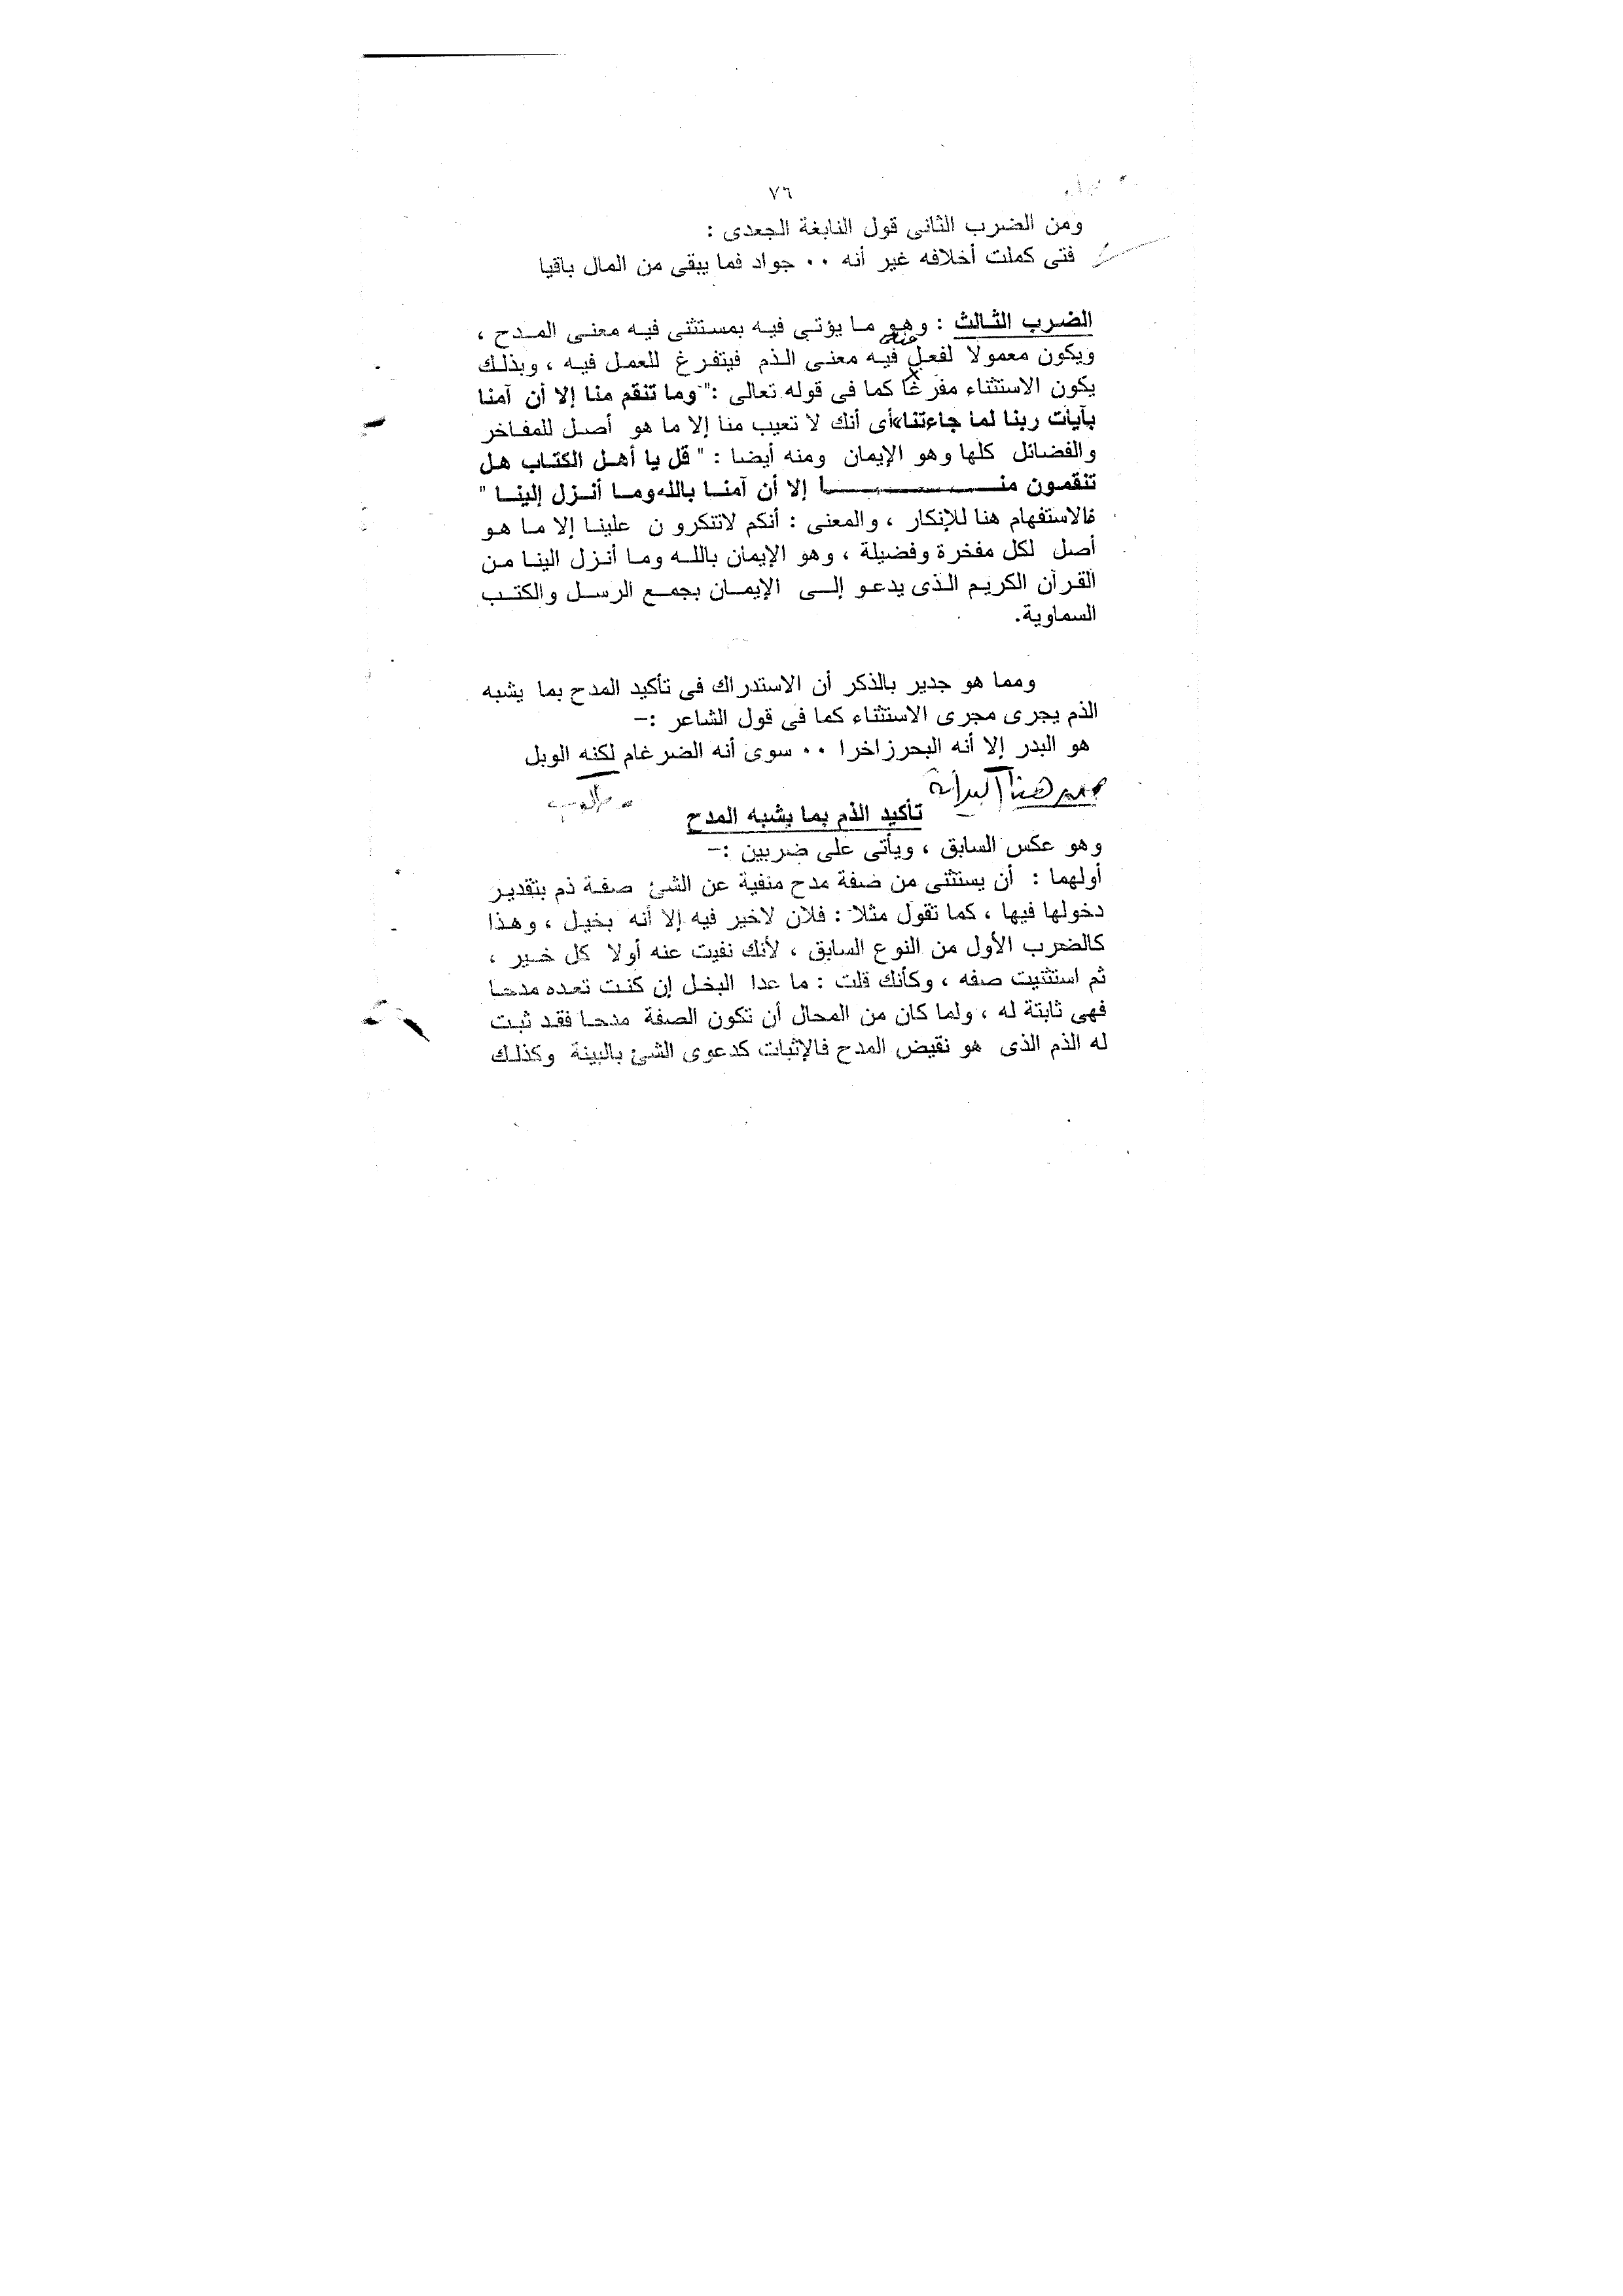 ٧٦
ومن الضرب الثانى قول النابغة الجعدى :
فتى كملت أخلاقه غير أنه ٠٠ جواد فما يبقى من المال باقيا
الضرب الثالث : وهو ما يؤتى فيه بمستثنى فيه معنى المدح ،
ويكون معمولا لفعل فيه معنى الذم فيتفرغ للعمل فيه ، وبذلك
يكون الاستثناء مفرغا كما فى قوله تعالى :" وما تنقم منا إلا أن آمنا
بآيات ربنا لما جاءتنا» أى أنك لا تعيب منا إلا ما هو أصل للمفاخر
والفضائل كلها وهو الإيمان ومنه أيضا : " قل يا أهل الكتاب هل
تنقمون منـــــــا إلا أن آمنا بالله وما أنزل إلينا "
فالاستفهام هنا للإنكار ، والمعنى : أنكم لاتنكرو ن علينا إلا ما هو
أصل لكل مفخرة وفضيلة ، وهو الإيمان بالله وما أنزل الينا من
القرآن الكريم الذى يدعو إلى الإيمان بجمع الرسل والكتب
السماوية.
ومما هو جدير بالذكر أن الاستدراك فى تأكيد المدح بما يشبه
الذم يجرى مجرى الاستثناء كما فى قول الشاعر :–
هو البدر إلا أنه البحرزاخرا ٠٠ سوى أنه الضرغام لكنه الوبل
هنا البداية
تأكيد الذم بما يشبه المدح
وهو عكس السابق ، ويأتى على ضربين :–
أولهما : أن يستثنى من صفة مدح منفية عن الشئ صفة ذم بتقدير
دخولها فيها ، كما تقول مثلا : فلان لاخير فيه إلا أنه بخيل ، وهذا
كالضرب الأول من النوع السابق ، لأنك نفيت عنه أولا كل خير ،
ثم استثنيت صفه ، وكأنك قلت : ما عدا البخل إن كنت تعده مدحا
فهى ثابتة له ، ولما كان من المحال أن تكون الصفة مدحا فقد ثبت
له الذم الذى هو نقيض المدح فالإثبات كدعوى الشئ بالبينة وكذلك